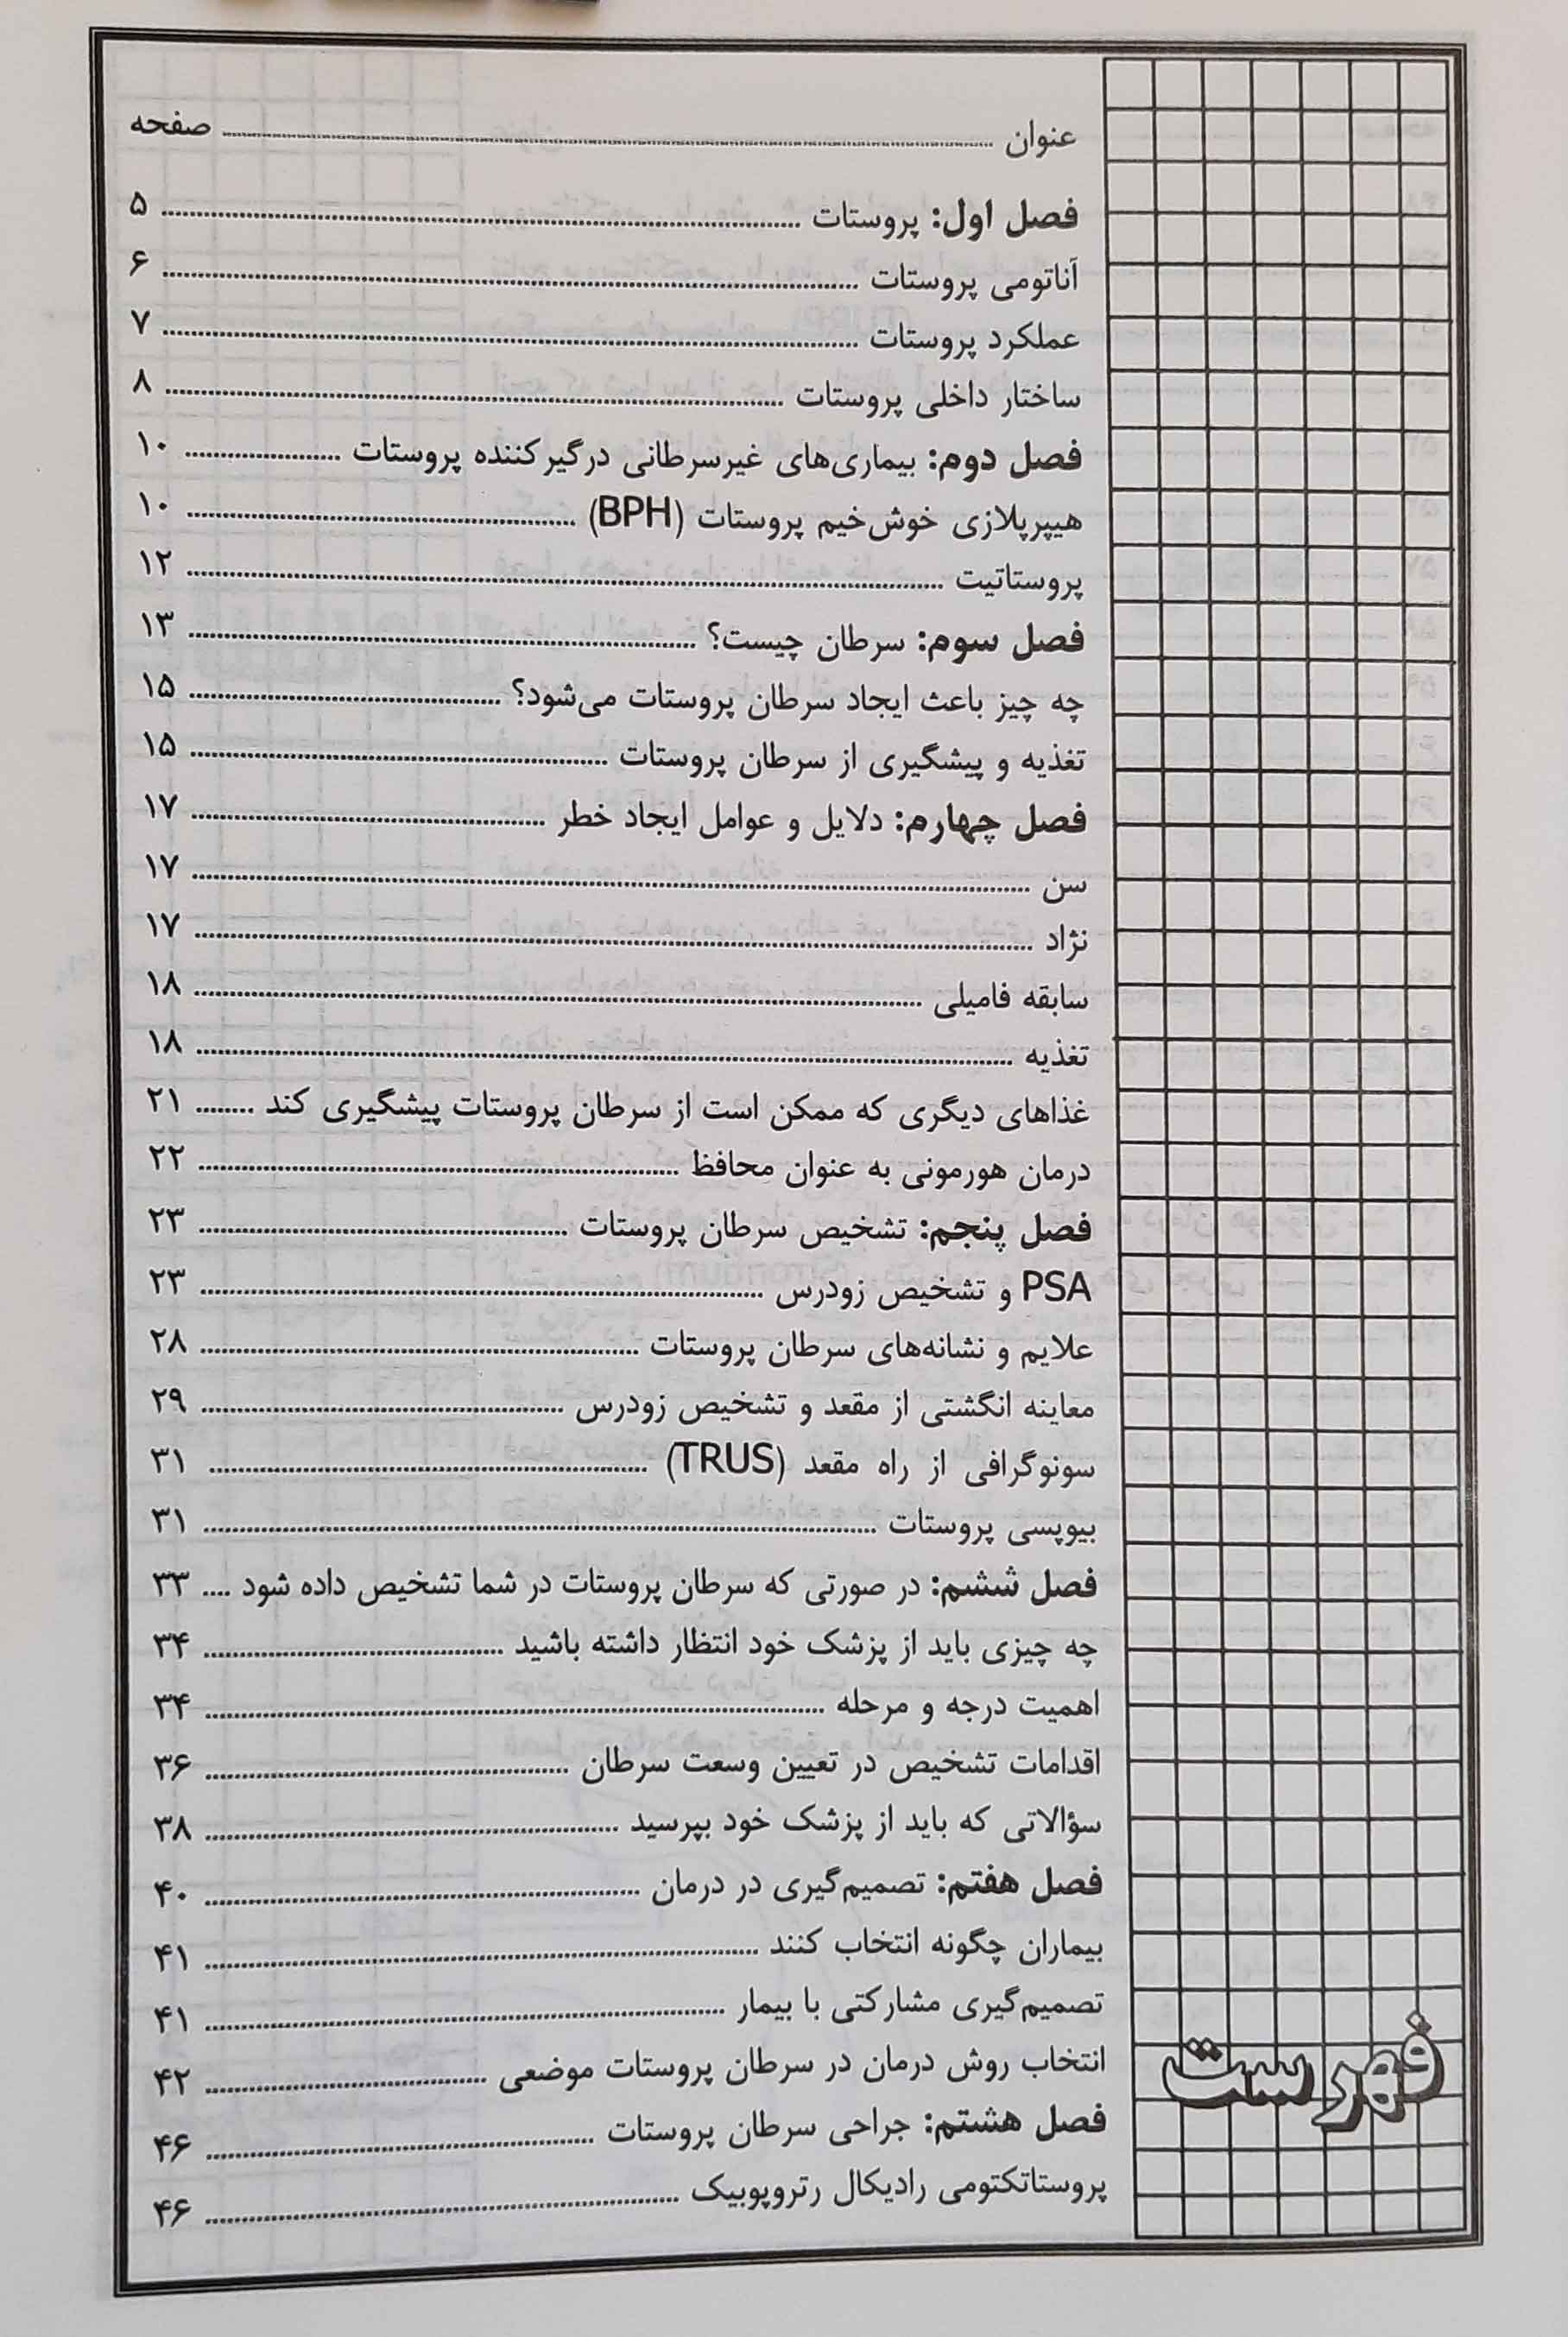 عنوان ........ صفحه
فصل اول: پروستات ........ ۵
آناتومی پروستات ........ ۶
عملکرد پروستات ........ ۷
ساختار داخلی پروستات ........ ۸
فصل دوم: بیماری‌های غیرسرطانی درگیر کننده پروستات ........ ۱۰
هیپرپلازی خوش‌خیم پروستات (BPH) ........ ۱۰
پروستاتیت ........ ۱۲
فصل سوم: سرطان چیست؟ ........ ۱۳
چه چیز باعث ایجاد سرطان پروستات می‌شود؟ ........ ۱۵
تغذیه و پیشگیری از سرطان پروستات ........ ۱۵
فصل چهارم: دلایل و عوامل ایجاد خطر ........ ۱۷
سن ........ ۱۷
نژاد ........ ۱۷
سابقه فامیلی ........ ۱۸
تغذیه ........ ۱۸
غذاهای دیگری که ممکن است از سرطان پروستات پیشگیری کند ........ ۲۱
درمان هورمونی به عنوان محافظ ........ ۲۲
فصل پنجم: تشخیص سرطان پروستات ........ ۲۳
PSA و تشخیص زودرس ........ ۲۳
علایم و نشانه‌های سرطان پروستات ........ ۲۸
معاینه انگشتی از مقعد و تشخیص زودرس ........ ۲۹
سونوگرافی از راه مقعد (TRUS) ........ ۳۱
بیوپسی پروستات ........ ۳۱
فصل ششم: در صورتی که سرطان پروستات در شما تشخیص داده شود .... ۳۳
چه چیزی باید از پزشک خود انتظار داشته باشید ........ ۳۴
اهمیت درجه و مرحله ........ ۳۴
اقدامات تشخیص در تعیین وسعت سرطان ........ ۳۶
سؤالاتی که باید از پزشک خود بپرسید ........ ۳۸
فصل هفتم: تصمیم‌گیری در درمان ........ ۴۰
بیماران چگونه انتخاب کنند ........ ۴۱
تصمیم‌گیری مشارکتی با بیمار ........ ۴۱
انتخاب روش درمان در سرطان پروستات موضعی ........ ۴۲
فصل هشتم: جراحی سرطان پروستات ........ ۴۶
پروستاتکتومی رادیکال رتروپوبیک ........ ۴۶
فهرست